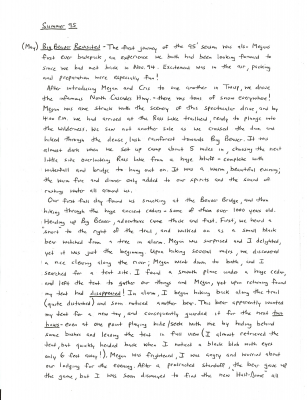 Summer 95
(May) Big Beaver Revisited - The first journey of the 95' season was also Megan's
first ever backpack, an experience we both had been looking forward to
since we had met back in Nov. 94. Excitement was in the air, packing
and preparation were especially fun!
After introducing Megan and Cric to one another in Twisp, we drove
the infamous North Cascades Hwy. - there was tons of snow everywhere!
Megan was awe struck with the scenery of this spectacular drive, and by
4:00 P.M. we had arrived at the Ross Lake trailhead, ready to plunge into
the wilderness. We saw not another site as we crossed the dam and
hiked through the dense, lush rainforest towards Big Beaver. It was
almost dark when we set up camp about 5 miles in, choosing the next
little site overlooking Ross Lake from a huge bluff - complete with
waterfall and bridge to hang out on. It was a warm, beautiful evening;
the warm fire and dinner only added to our spirits and the sound of
rushing water all around us.
Our first full day found us snacking at the Beaver Bridge, and then
hiking through the huge ancient cedars - some of them over 1000 years old.
Heading up Big Beaver, adventure came there and fast. First, we heard a
snort to the right of the trail, and walked on as a small black
bear watched from a tree in alarm. Megan was surprised and I delighted,
yet it was just the beginning. Upon hiking several miles, we discovered
a nice clearing along the river; Megan went down to bathe, and I
searched for a tent site. I found a smooth place under a huge cedar,
and left the tent to gather our things and Megan, yet upon returning found
my tent had disappeared! In alarm, I began looking back along the trail
(quite disturbed) and soon noticed another bear. This bear apparently wanted
my tent for a new toy, and consequently guarded it for the next two
hours - even at one point playing hide/seek with me by hiding behind
some bushes and leaving the tent in full view (I almost retrieved the
tent, but quickly headed back when I noticed a black blob with eyes
only 6 feet away!). Megan was frightened, I was angry and worried about
our lodging for the evening. After a protracted standoff, the bear gave up
the game, but I was soon dismayed to find the new "half-dome" all